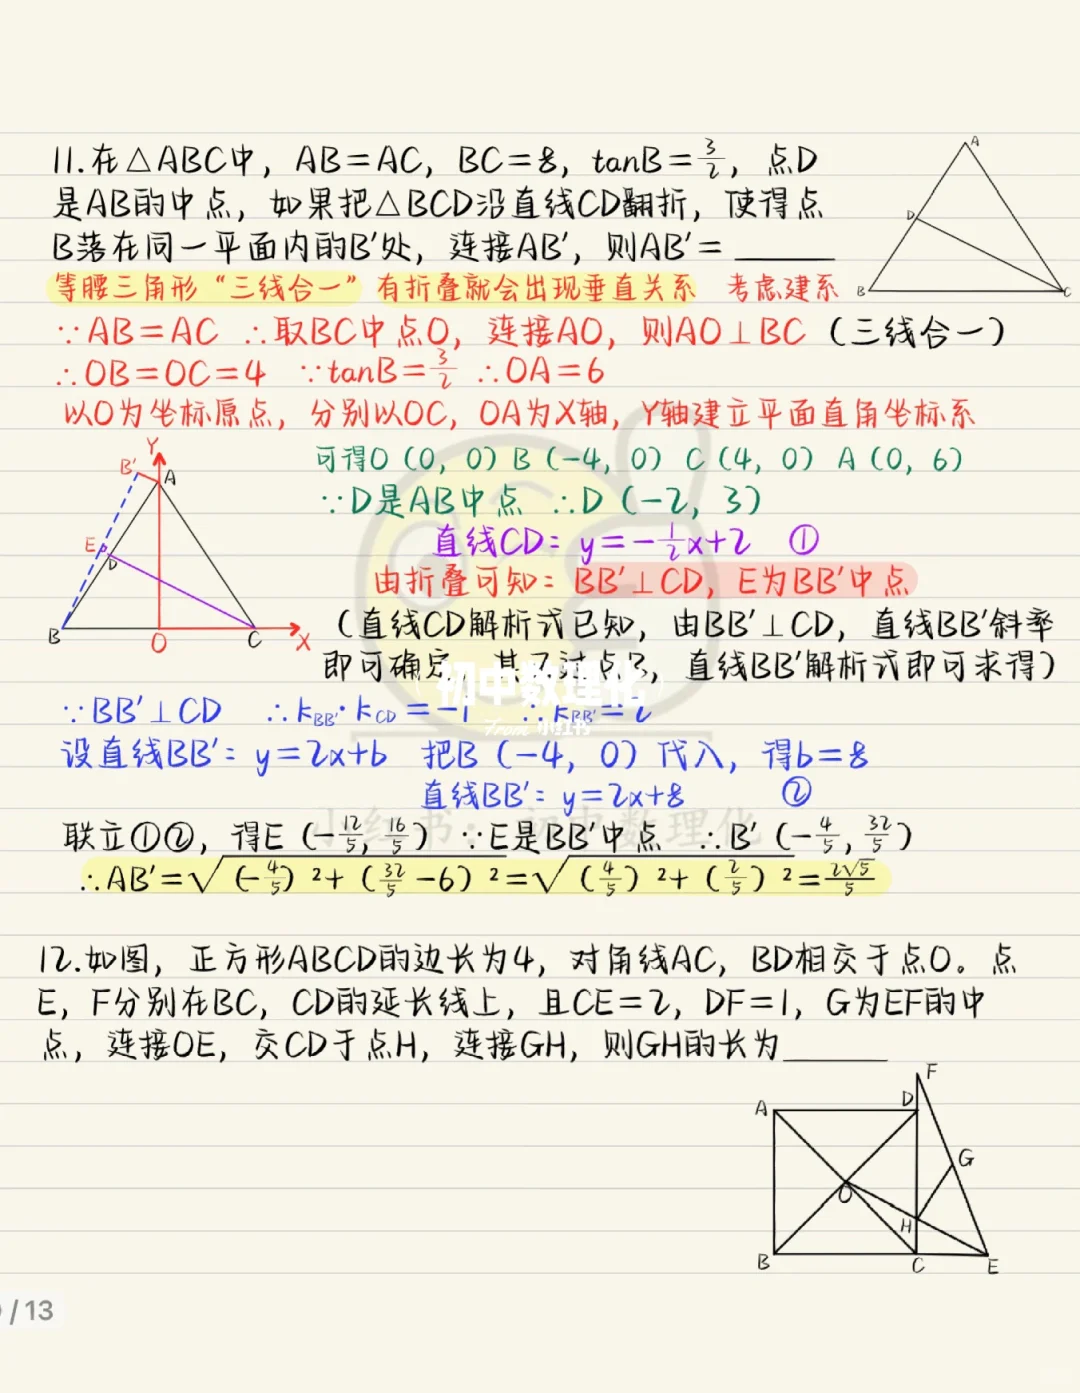 11.在△ABC中，AB=AC，BC=8，tanB=3/2，点D
是AB的中点，如果把△BCD沿直线CD翻折，使得点
B落在同一平面内的B'处，连接AB'，则AB'=______
A
D
B
C
等腰三角形“三线合一” 有折叠就会出现垂直关系 考虑建系
∵AB=AC ∴取BC中点O，连接AO，则AO⊥BC（三线合一）
∴OB=OC=4 ∵tanB=3/2 ∴OA=6
以O为坐标原点，分别以OC，OA为X轴，Y轴建立平面直角坐标系
Y
B'
A
E
D
B
O
C
X
可得O（0，0）B（-4，0）C（4，0）A（0，6）
∵D是AB中点 ∴D（-2，3）
直线CD：y=-1/2x+2 ①
由折叠可知：BB'⊥CD，E为BB'中点
（直线CD解析式已知，由BB'⊥CD，直线BB'斜率
即可确定，其又过点B，直线BB'解析式即可求得）
初中数理化
From 小红书
∵BB'⊥CD ∴kBB'·kCD=-1 ∴kBB'=2
设直线BB'：y=2x+b 把B（-4，0）代入，得b=8
直线BB'：y=2x+8 ②
小红书：初中数理化
联立①②，得E（-12/5，16/5）∵E是BB'中点 ∴B'（-4/5，32/5）
∴AB'=√(-4/5)²+(32/5-6)²=√(4/5)²+(2/5)²=2√5/5
12.如图，正方形ABCD的边长为4，对角线AC，BD相交于点O。点
E，F分别在BC，CD的延长线上，且CE=2，DF=1，G为EF的中
点，连接OE，交CD于点H，连接GH，则GH的长为______
F
A
D
G
O
H
B
C
E
/13